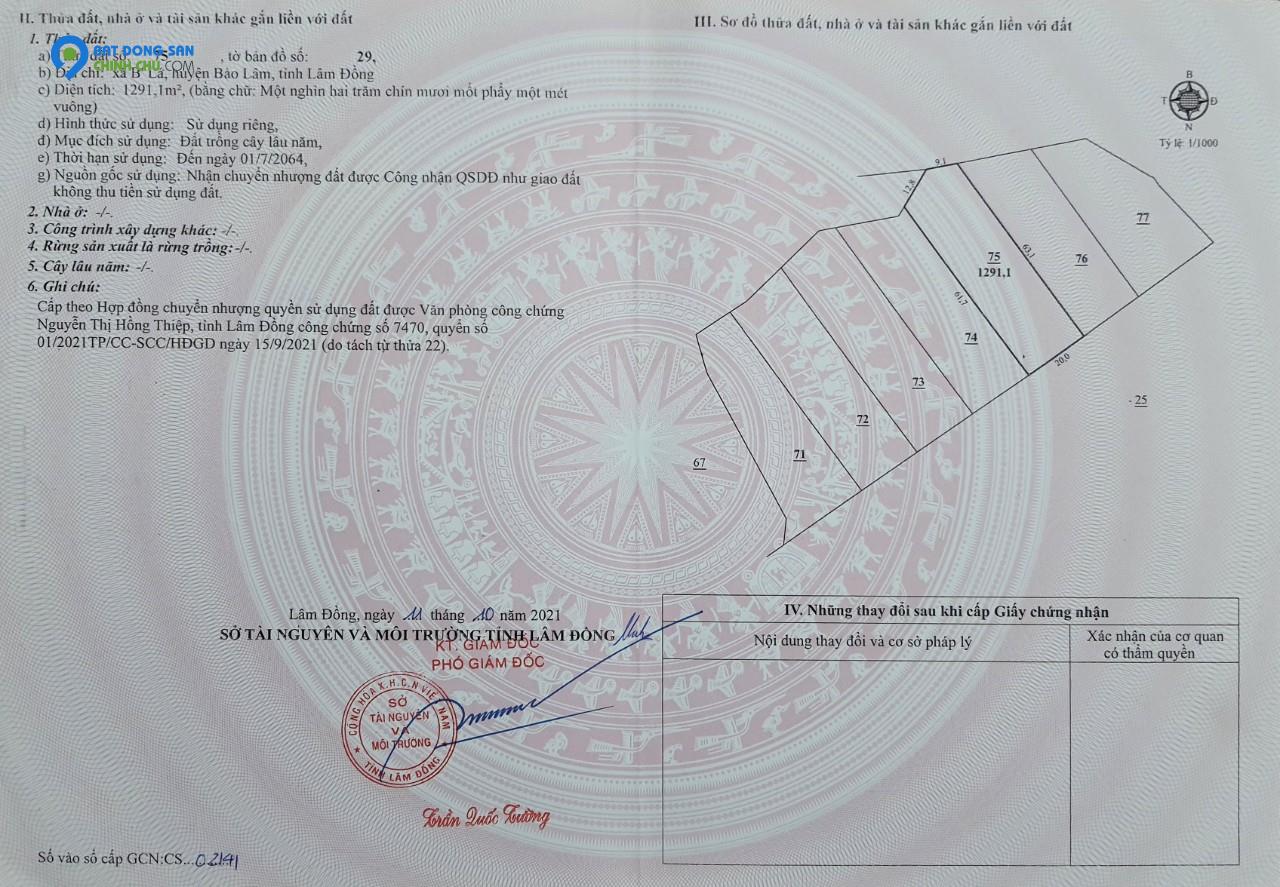 II. Thửa đất, nhà ở và tài sản khác gắn liền với đất
1. Thửa đất:
a) Thửa đất số: 75, tờ bản đồ số: 29,
BAT DONG SAN
CHINH CHU.COM
b) Địa chỉ: xã B' Lá, huyện Bảo Lâm, tỉnh Lâm Đồng
c) Diện tích: 1291,1m², (bằng chữ: Một nghìn hai trăm chín mươi mốt phẩy một mét
vuông)
d) Hình thức sử dụng: Sử dụng riêng,
đ) Mục đích sử dụng: Đất trồng cây lâu năm,
e) Thời hạn sử dụng: Đến ngày 01/7/2064,
g) Nguồn gốc sử dụng: Nhận chuyển nhượng đất được Công nhận QSDĐ như giao đất
không thu tiền sử dụng đất.
2. Nhà ở: -/-.
3. Công trình xây dựng khác: -/-.
4. Rừng sản xuất là rừng trồng: -/-.
5. Cây lâu năm: -/-.
6. Ghi chú:
Cấp theo Hợp đồng chuyển nhượng quyền sử dụng đất được Văn phòng công chứng
Nguyễn Thị Hồng Thiệp, tỉnh Lâm Đồng công chứng số 7470, quyển số
01/2021TP/CC-SCC/HĐGD ngày 15/9/2021 (do tách từ thửa 22).
Lâm Đồng, ngày 11 tháng 10 năm 2021
SỞ TÀI NGUYÊN VÀ MÔI TRƯỜNG TỈNH LÂM ĐỒNG
KT. GIÁM ĐỐC
PHÓ GIÁM ĐỐC
CỘNG HÒA X.H.C.N VIỆT NAM
SỞ
TÀI NGUYÊN
VÀ
MÔI TRƯỜNG
TỈNH LÂM ĐỒNG
Trần Quốc Tường
Số vào sổ cấp GCN:CS...02141
III. Sơ đồ thửa đất, nhà ở và tài sản khác gắn liền với đất
B
T
Đ
N
Tỷ lệ: 1/1000
9,1
12,8
77
75
1291,1
63,1
76
61,7
74
20,0
73
25
72
71
67
IV. Những thay đổi sau khi cấp Giấy chứng nhận
Nội dung thay đổi và cơ sở pháp lý
Xác nhận của cơ quan
có thẩm quyền